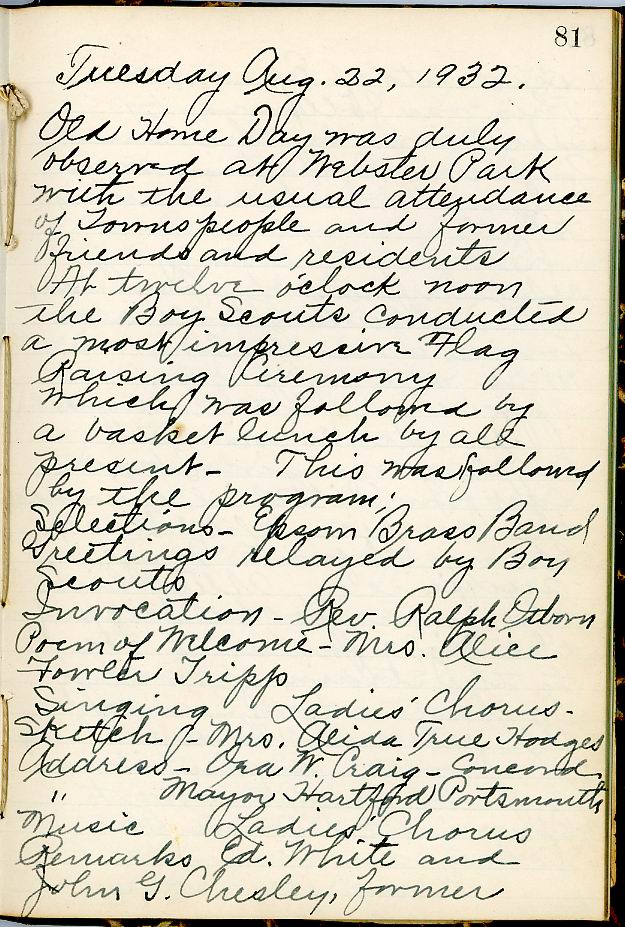 81
Tuesday Aug. 22, 1932.
Old Home Day was duly
observed at Webster Park
with the usual attendance
of Townspeople and former
friends and residents
At twelve o'clock noon
the Boy Scouts conducted
a most impressive Flag
Raising Ceremony
which was followed by
a basket lunch by all
present - This was followed
by the program;
Selections - Epsom Brass Band
Greetings relayed by Boy
Scouts
Invocation - Rev. Ralph Osborn
Poem of Welcome - Mrs. Alice
Fowler Tripp
Singing Ladies' Chorus -
Sketch - Mrs. Alida True Hodges
Address - Ora W. Craig - Concord
" Mayor Hartford Portsmouth
Music Ladies' Chorus
Remarks Ed. White and
John G. Chesley, former